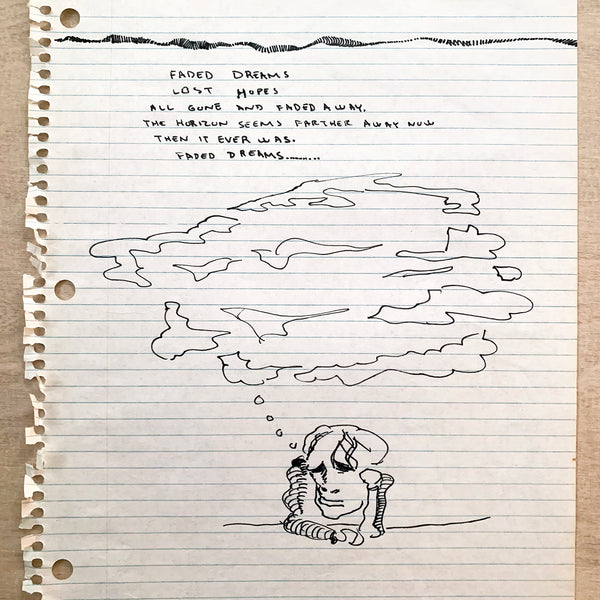 FADED DREAMS
LOST HOPES
ALL GONE AND FADED AWAY.
THE HORIZON SEEMS FARTHER AWAY NOW
THEN IT EVER WAS.
FADED DREAMS.........